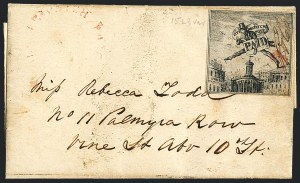 PAID
Miss Rebecca Todd
No 11 Palmyra Row
Vine St Abv 10th St: